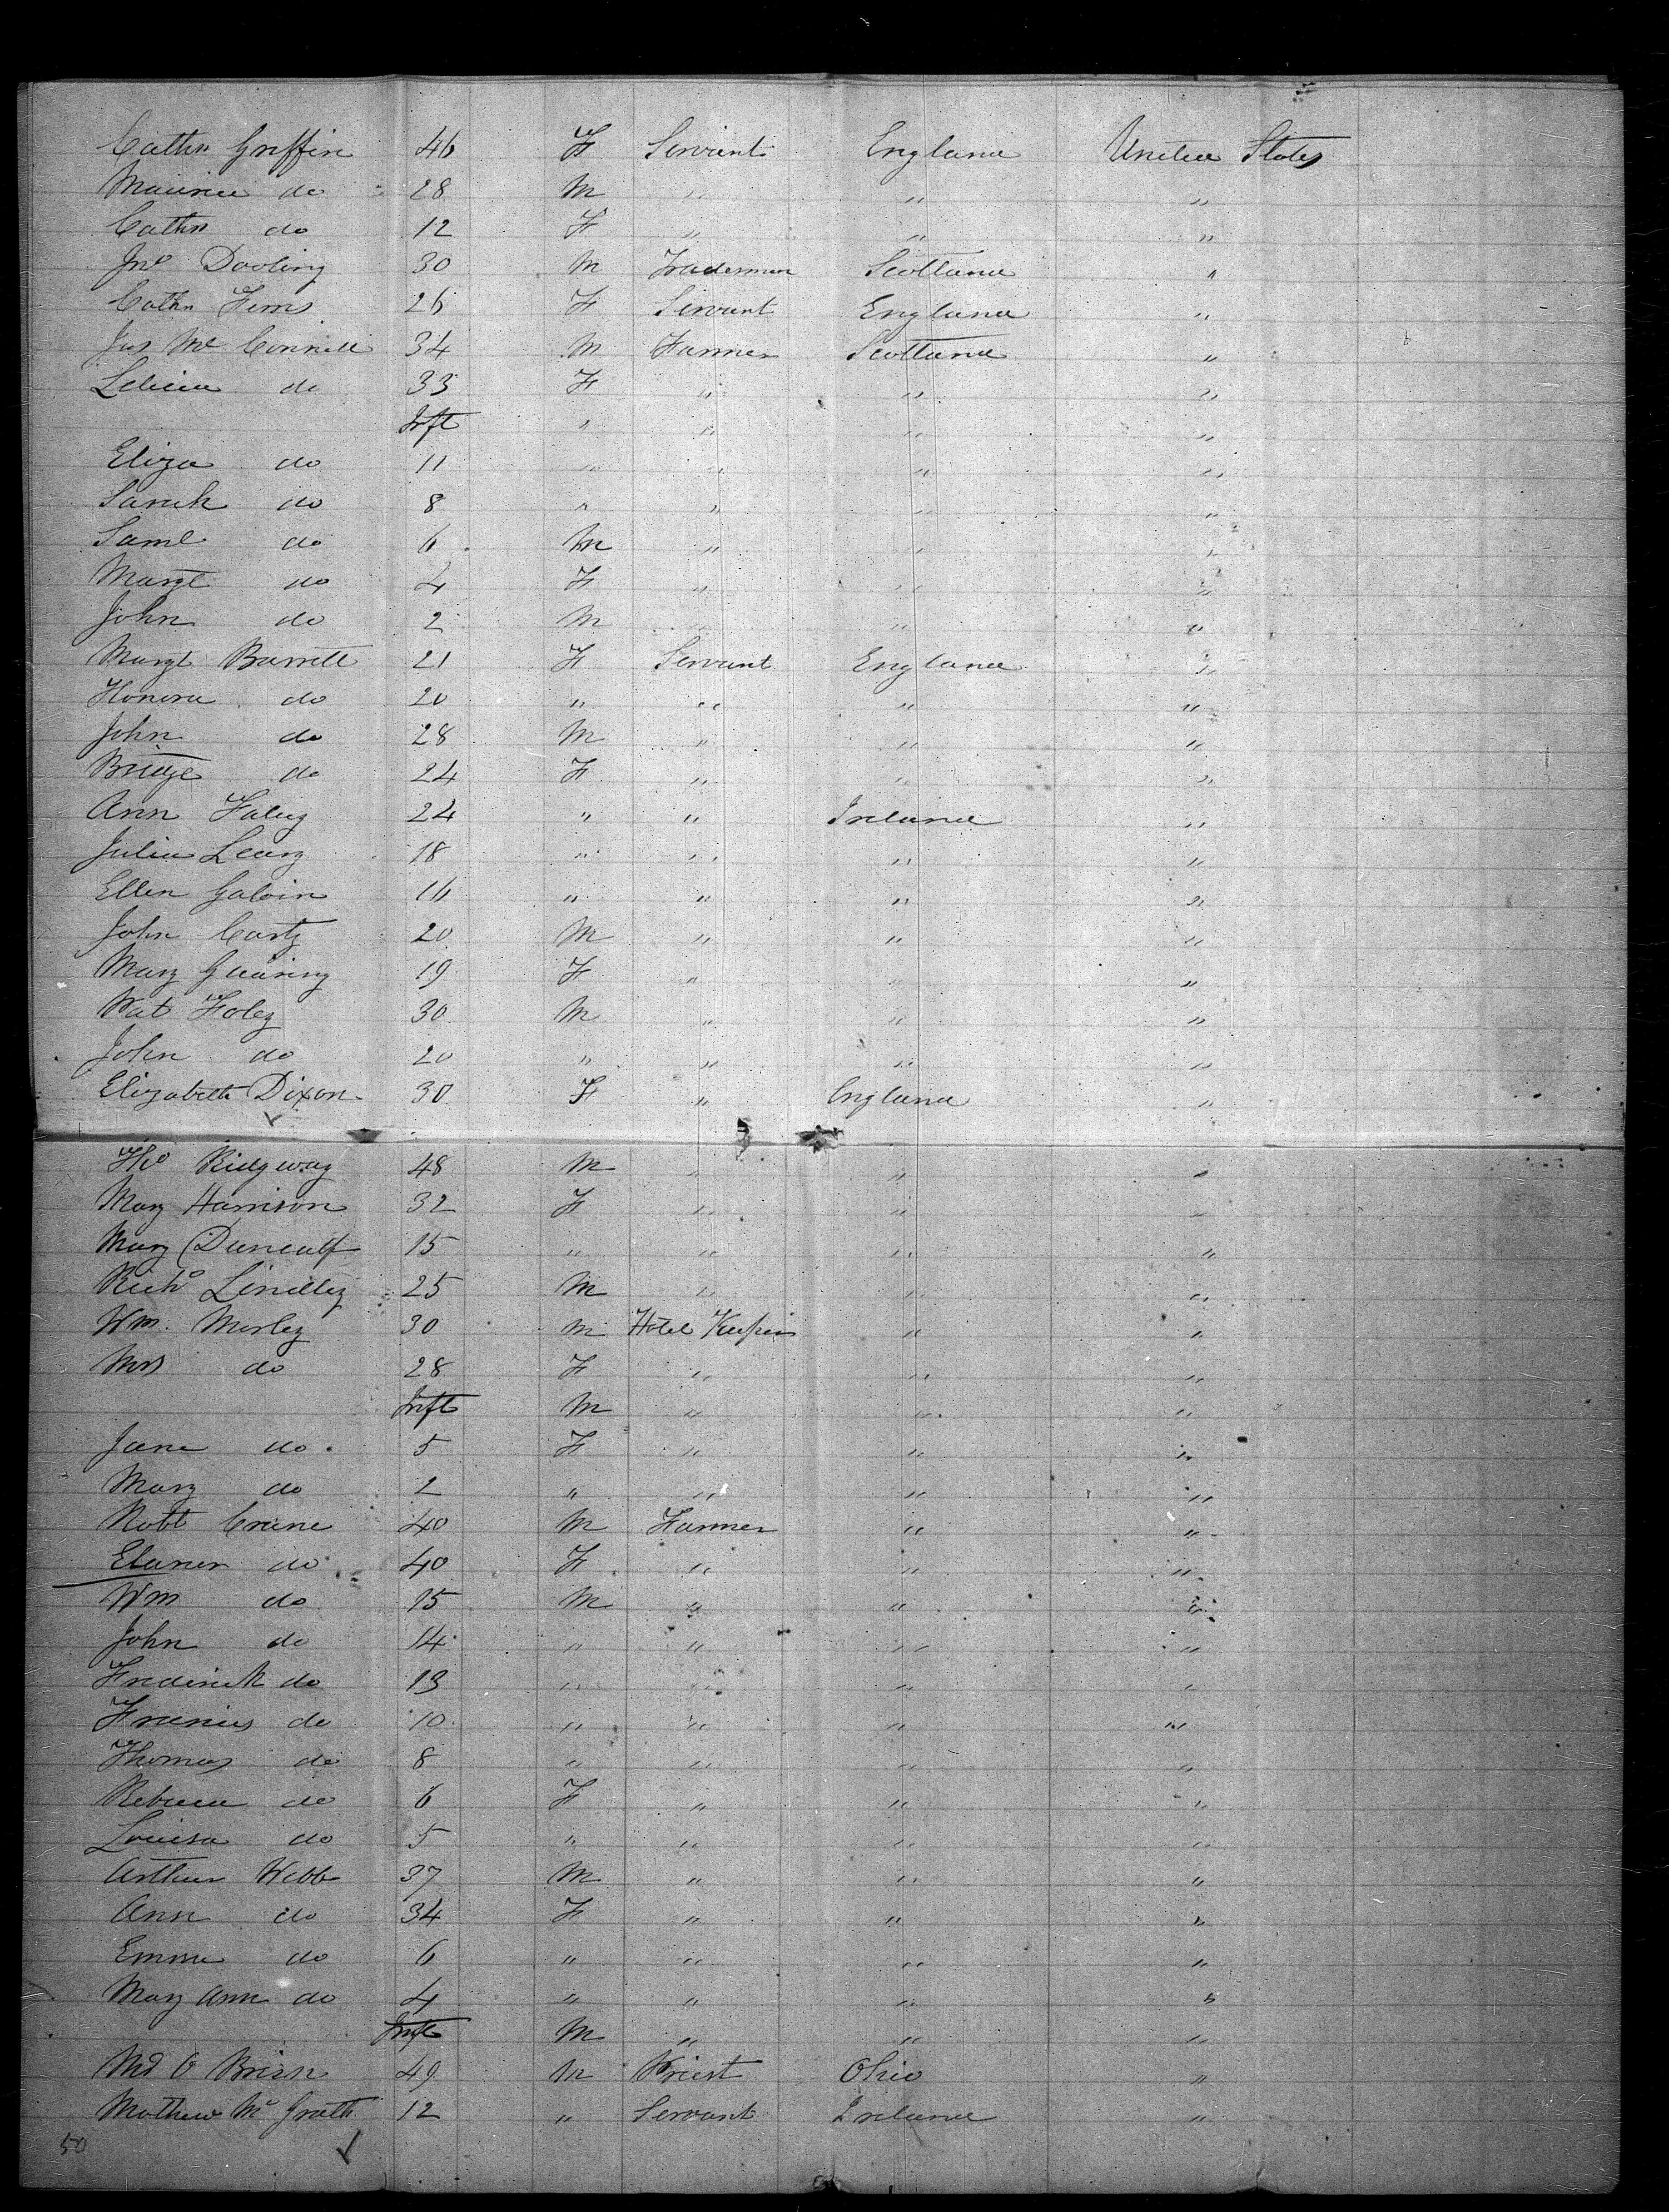 Cathn Griffin 46 F Servant England United States
Maurice do 28 M " " "
Cathn do 12 F " " "
Jno Dooling 30 M Tradesman Scotland "
Cathn Ferns 26 F Servant England "
Jas Mc Connell 34 M Farmer Scotland "
Leticia do 33 F " " "
Inft " " " "
Eliza do 11 " " " "
Sarah do 8 " " " "
Saml do 6 M " " "
Margt do 4 F " " "
John do 2 M " " "
Margt Barrett 21 F Servant England "
Honora do 20 " " " "
John do 28 M " " "
Bridgt do 24 F " " "
Ann Foley 24 " " Ireland "
Julia Leary 18 " " " "
Ellen Galvin 16 " " " "
John Carty 20 M " " "
Mary Guaring 19 F " " "
Pat Foley 30 M " " "
John do 20 " " " "
Elizabeth Dixon 30 F " England "
Tho Ridgway 48 M " " "
Mary Harrison 32 F " " "
Mary Duncalf 15 " " " "
Richd Lindley 25 M " " "
Wm. Morley 30 M Hotel Keeper " "
Mrs do 28 F " " "
Inft M " " "
Jane do 5 F " " "
Mary do 2 " " " "
Robt Crane 40 M Farmer " "
Elanor do 40 F " " "
Wm do 15 M " " "
John do 14 " " " "
Frederick do 13 " " " "
Francis do 10 " " " "
Thomas do 8 " " " "
Rebecca do 6 F " " "
Louisa do 5 " " " "
Arthur Webb 37 M " " "
Ann do 34 F " " "
Emma do 6 " " " "
Mary Ann do 4 " " " "
Inft M " " "
Md O Brien 49 M Priest Ohio "
Mathew Mc Grath 12 " Servant Ireland "
50